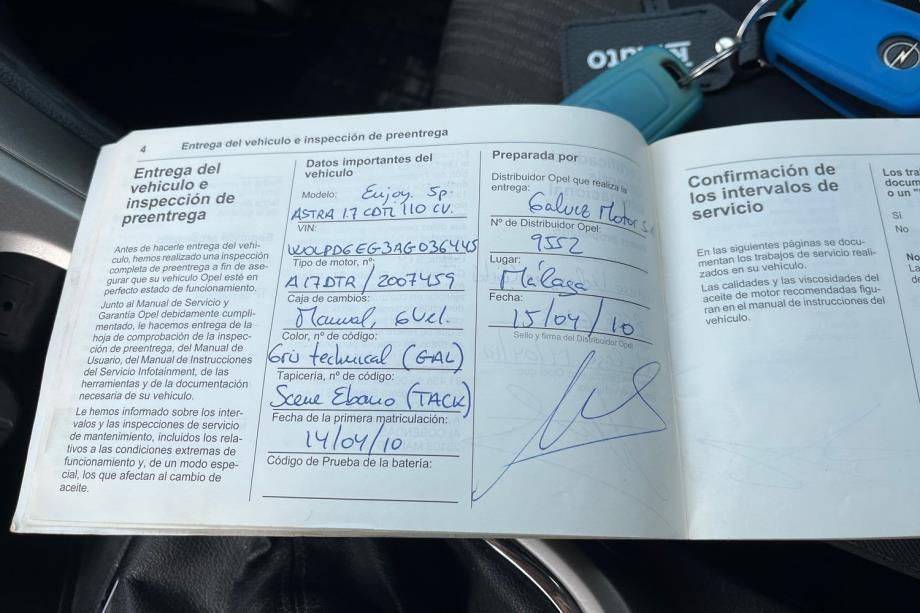 4 Entrega del vehiculo e inspección de preentrega
Entrega del
vehiculo e
inspección de
preentrega
Antes de hacerle entrega del vehí-
culo, hemos realizado una inspección
completa de preentrega a fin de ase-
gurar que su vehículo Opel esté en
perfecto estado de funcionamiento.
Junto al Manual de Servicio y
Garantía Opel debidamente cumpli-
mentado, le hacemos entrega de la
hoja de comprobación de la inspec-
ción de preentrega, del Manual de
Usuario, del Manual de Instrucciones
del Servicio Infotainment, de las
herramientas y de la documentación
necesaria de su vehículo.
Le hemos informado sobre los inter-
valos y las inspecciones de servicio
de mantenimiento, incluidos los rela-
tivos a las condiciones extremas de
funcionamiento y, de un modo espe-
cial, los que afectan al cambio de
aceite.
Datos importantes del
vehículo
Modelo: Enjoy. 5p.
ASTRA 1.7 CDTI 110 CV.
VIN:
WOLPD6EG3AG036445
Tipo de motor, nº:
A17DTR / 2007459
Caja de cambios:
Manual, 6Vel.
Color, nº de código:
Gris technical (GAL)
Tapicería, nº de código:
Scene Ebano (TACK)
Fecha de la primera matriculación:
14/04/10
Código de Prueba de la batería:
Preparada por
Distribuidor Opel que realiza la
entrega:
Galvez Motor S.
Nº de Distribuidor Opel:
9552
Lugar:
Málaga
Fecha:
15/04/10
Sello y firma del Distribuidor Opel
Confirmación de
los intervalos de
servicio
En las siguientes páginas se docu-
mentan los trabajos de servicio reali-
zados en su vehículo.
Las calidades y las viscosidades del
aceite de motor recomendadas figu-
ran en el manual de instrucciones del
vehículo.
Los tra
docum
o un "
Si
No
No
La
de